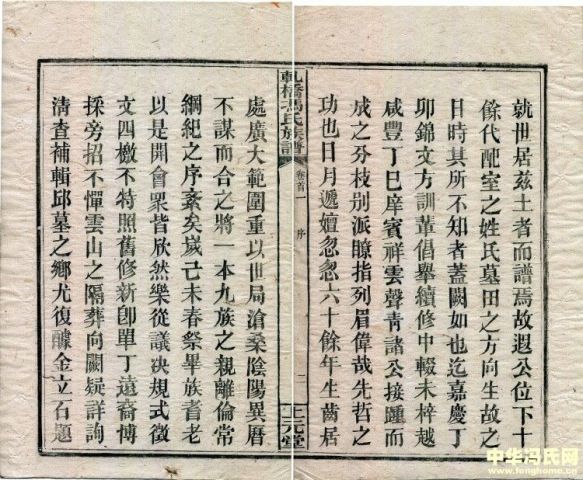 就世居茲土者而譜焉故遐公位下十
餘代配室之姓氏墓田之方向生故之
日時其所不知者蓋闕如也迄嘉慶丁
卯錦文方訓輩倡舉續修中輟未梓越
咸豐丁巳庠賓祥雲聲青諸公接踵而
成之分枝别派瞭指列眉偉哉先哲之
功也日月遞嬗忽忽六十餘年生齒居
軋橋馮氏族譜
卷首一
序
二
上元堂
處廣大範圍重以世局滄桑陰陽異曆
不謀而合之將一本九族之親離倫常
綱紀之序紊矣歲己未春祭畢族耆老
以是開會眾皆欣然樂從議決規式徵
文四檄不特照舊修新卽單丁遠裔博
採旁招不憚雲山之隔葬向闕疑詳詢
清查補輯邱墓之鄉尤復醵金立石題
中华冯氏网
www.fenghome.cn